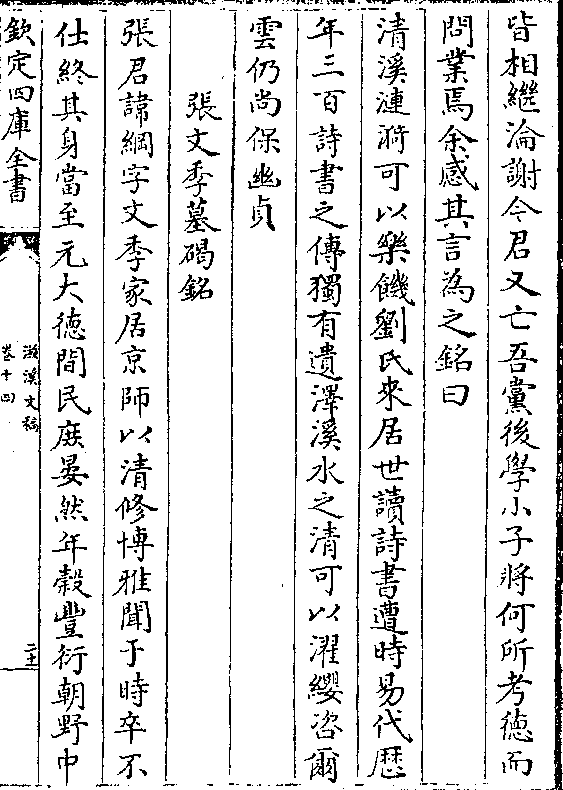 皆相繼淪謝今君又亡吾黨後學小子將何所考德而
問業焉余感其言為之銘曰
清溪漣漪可以樂饑劉氏來居世讀詩書遭時易代歴
年二百詩書之傳獨有遺澤溪水之清可以濯纓咨爾
雲仍尚保幽貞
張文季墓碣銘
張君諱綱字文季家居京師以清修博雅聞于時卒不
仕終其身當至元大徳間民庶晏然年榖豐衍朝野中
欽定四庫全書
滋溪文稿
卷十四
二十